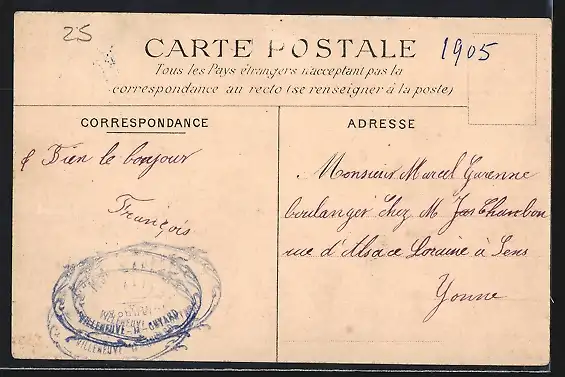 25
CARTE POSTALE
1905
Tous les Pays étrangers n'acceptant pas la
correspondance au recto (se renseigner à la poste)
CORRESPONDANCE
ADRESSE
Bien le bonjour
François
Monsieur Marcel Garenne
boulanger chez M Jas Chambon
rue d'Alsace Loraine à Sens
Yonne
VILLENEUVE
VILLENEUVE